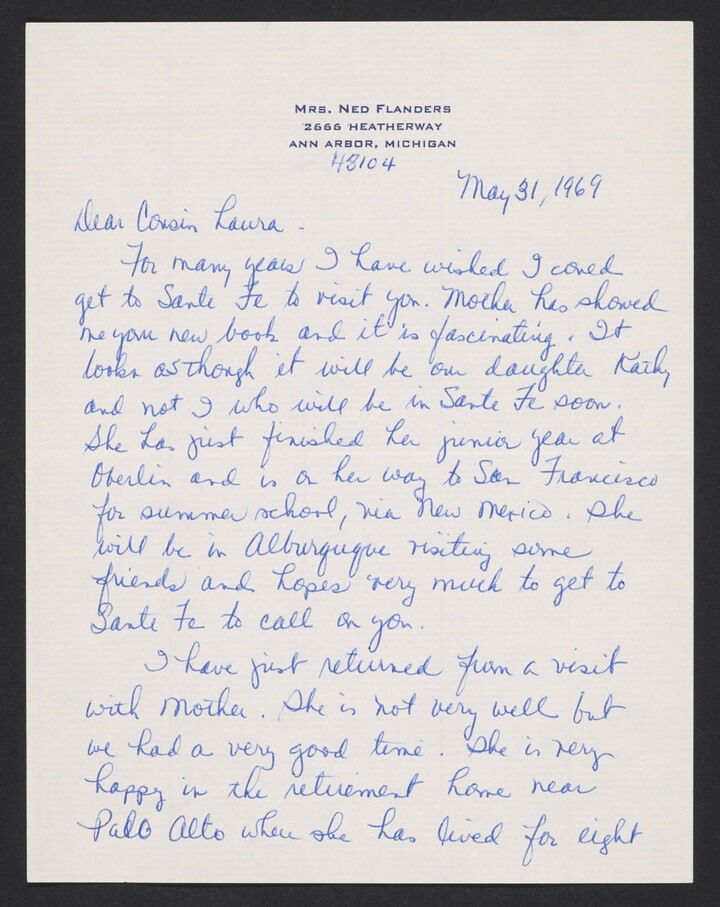 MRS. NED FLANDERS
2666 HEATHERWAY
ANN ARBOR, MICHIGAN
48104
May 31, 1969
Dear Cousin Laura -
For many years I have wished I could
get to Sante Fe to visit you. Mother has showed
me your new book and it is fascinating. It
looks as though it will be our daughter Kathy
and not I who will be in Sante Fe soon.
She has just finished her junior year at
Oberlin and is on her way to San Francisco
for summer school, via New Mexico. She
will be in Alburquque visiting some
friends and hopes very much to get to
Sante Fe to call on you.
I have just returned from a visit
with Mother. She is not very well but
we had a very good time. She is very
happy in the retirement home near
Palo Alto where she has lived for eight